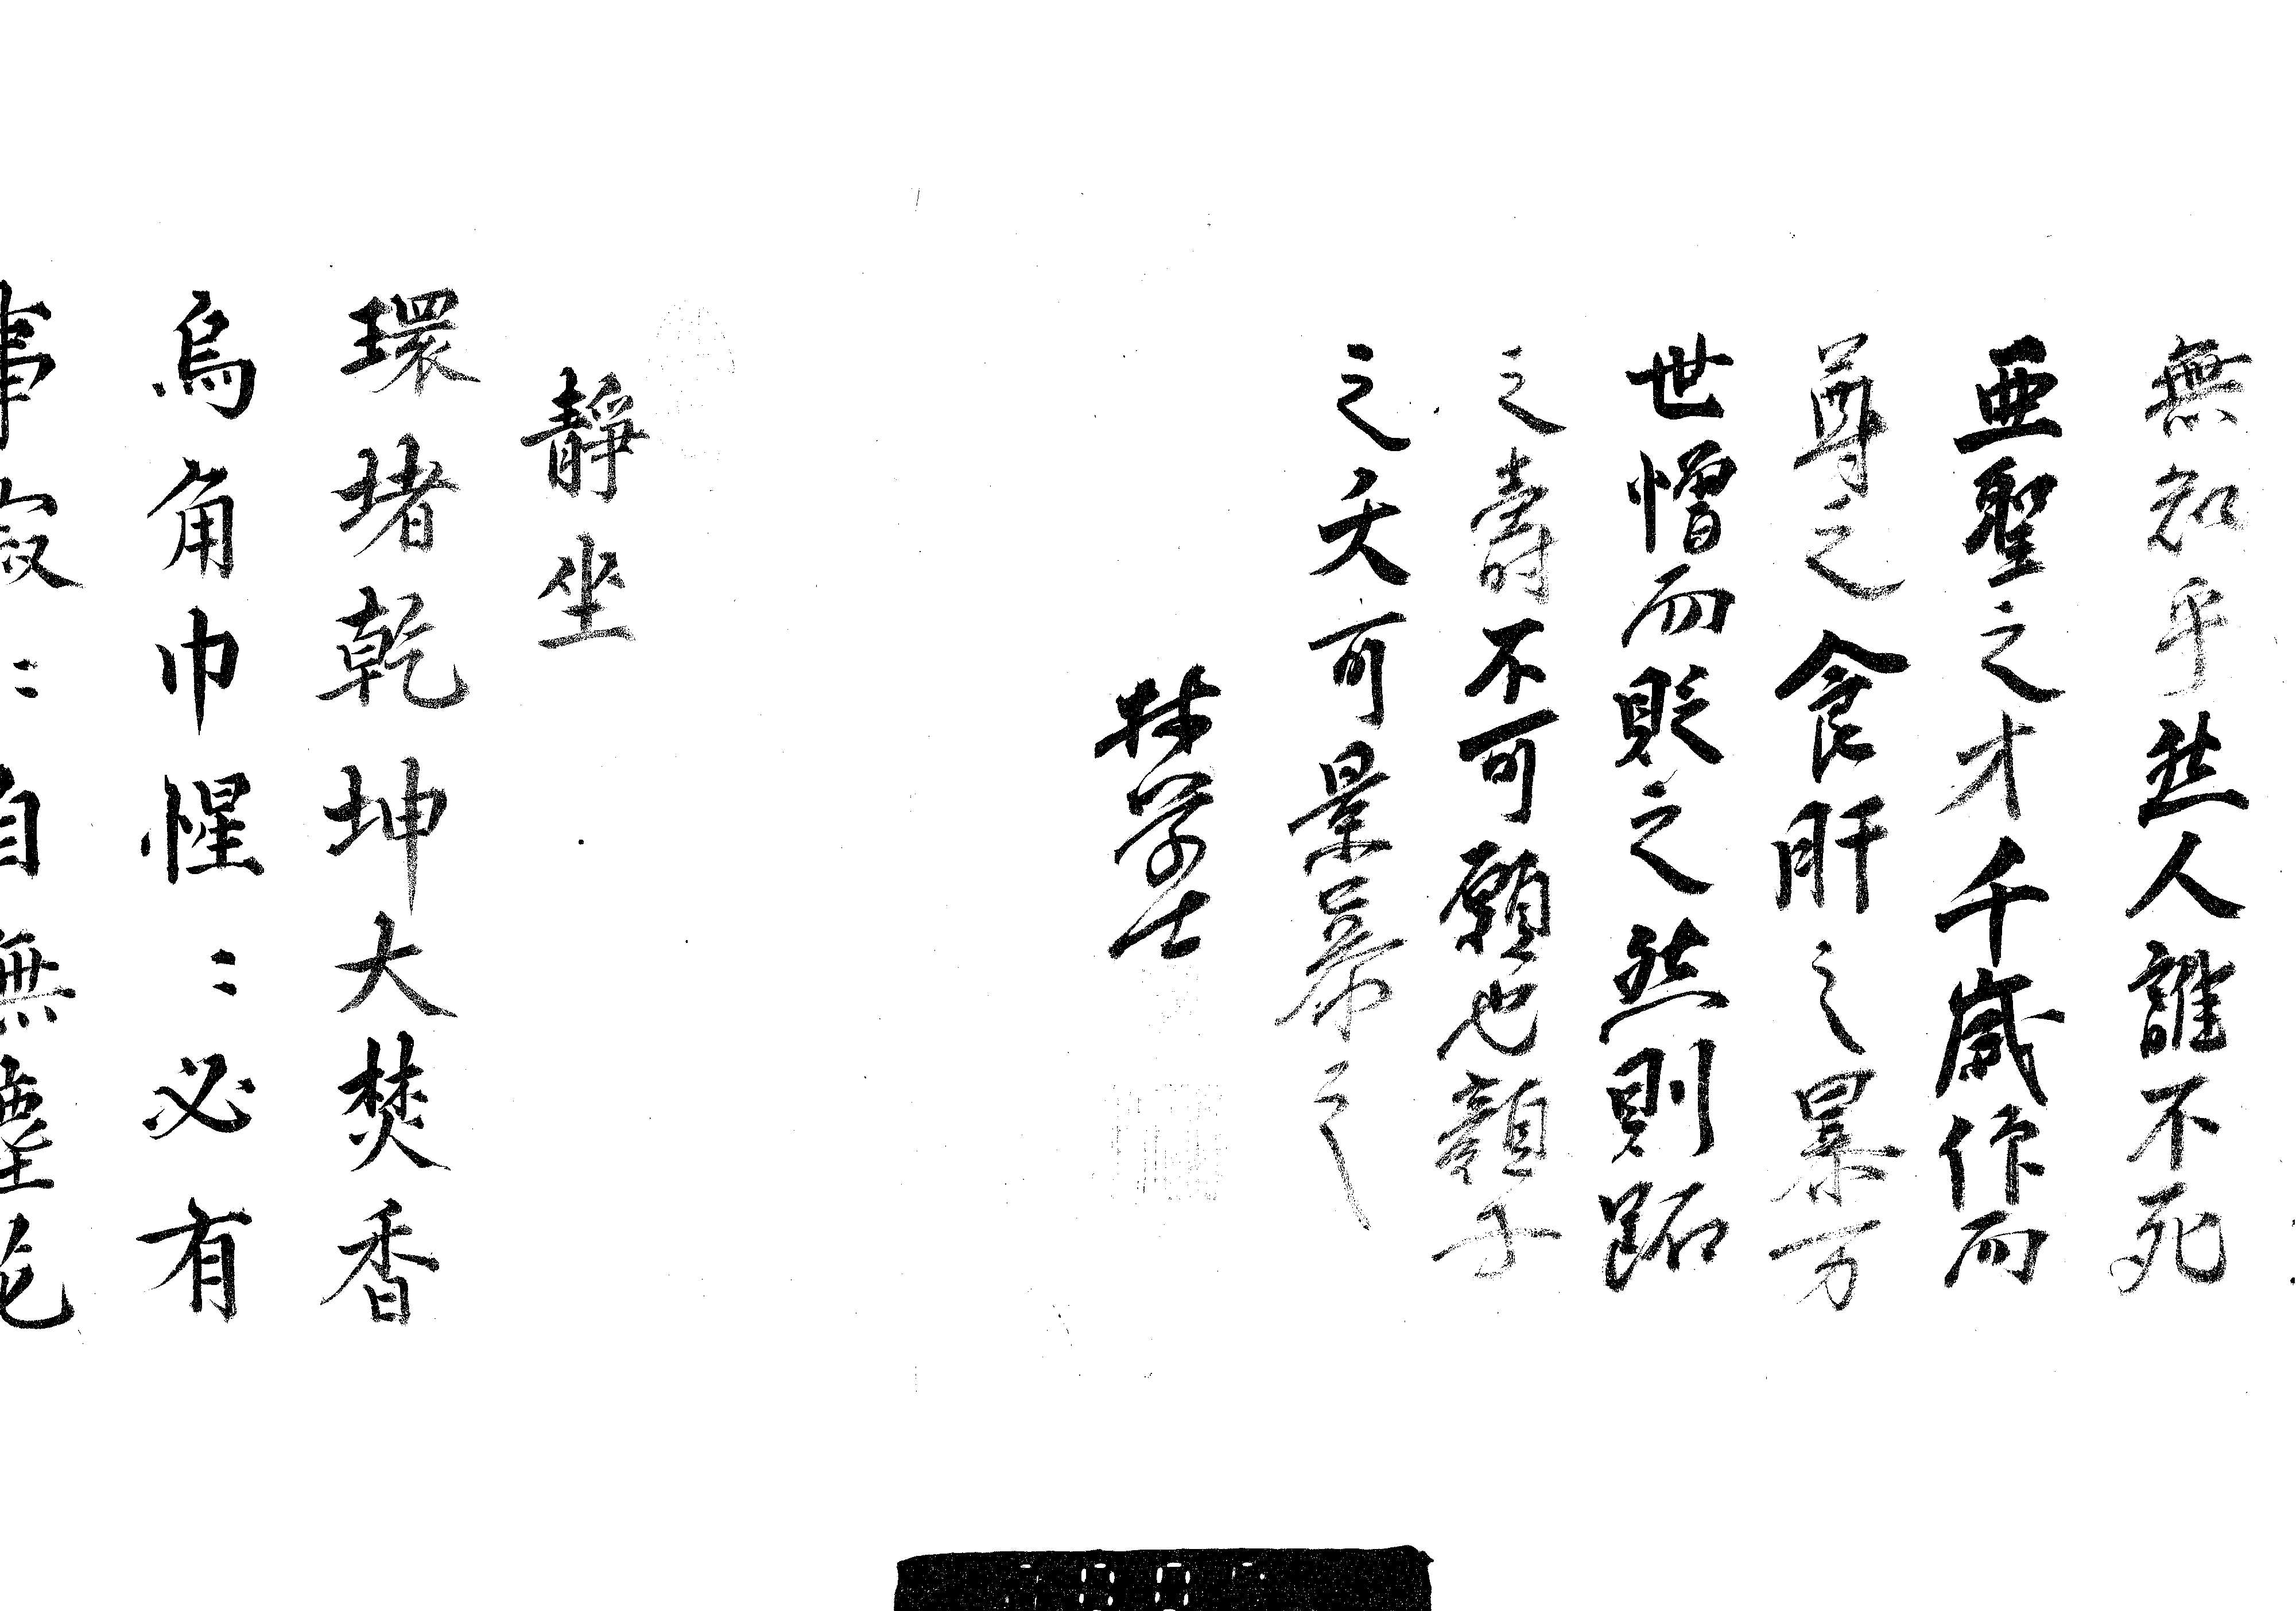 無知乎然人誰不死
亜聖之才千歳作而
尊之食肝之暴万
世憎而貶之然則跖
之壽不可願也顔子
之夭可景慕之
林学士
靜坐
環堵乾坤大焚香
烏角巾惺〻必有
事寂〻自無塵